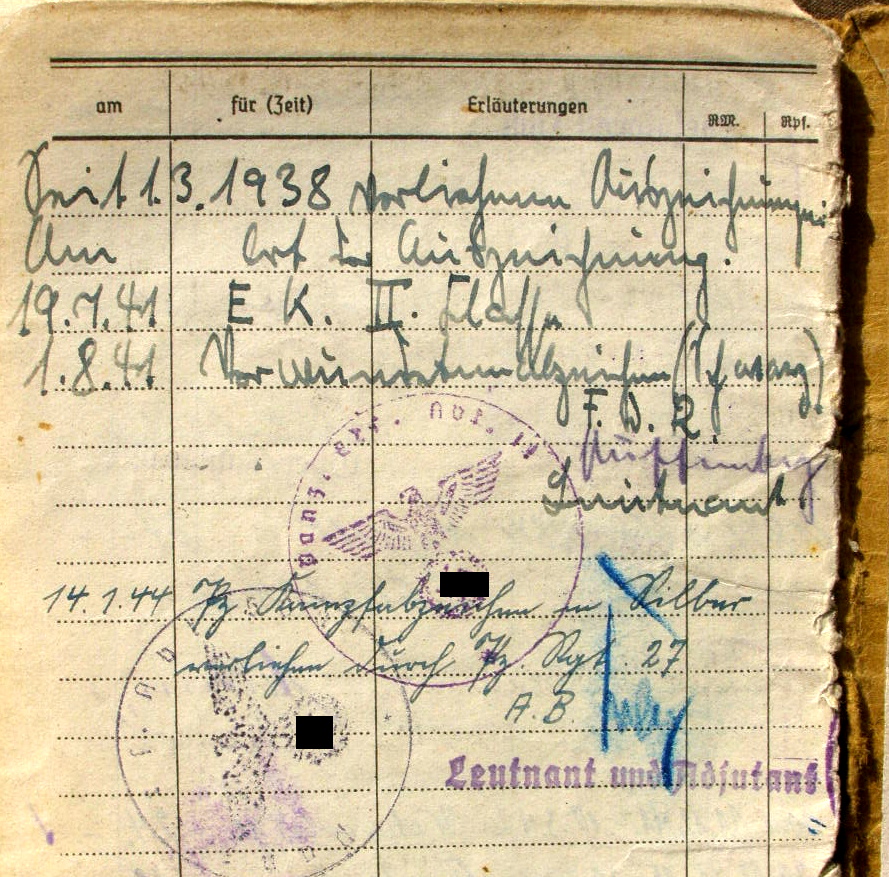 am für (Zeit) Erläuterungen RM. Rpf.
Seit 1.3.1938 verliehene Auszeichnungen
Am Art der Auszeichnung.
19.7.41 E K. II. Klasse
1.8.41 Verwundetenabzeichen (Schwarz)
F. d. R.
Leutnant.
Panz. Ers. Abt.
14.1.44 Pz Kampfabzeichen in Silber
verliehen durch Pz. Rgt. 27
A.B
Leutnant und Adjutant